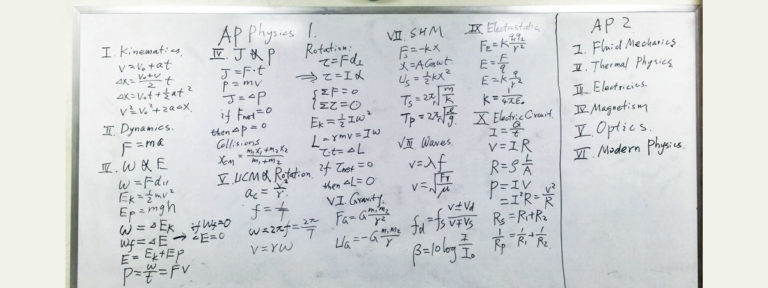 AP Physics 1.
I. Kinematics.
v = v₀ + at
Δx = (v₀+v)/2 t
Δx = v₀t + ½at²
v² = v₀² + 2aΔx.
II Dynamics.
F = ma
IV. W & E
W = Fd₁₁
E_K = ½mv²
E_P = mgh
W = ΔE_K
W_f = ΔE → if W_f=0 ΔE=0
E = E_K + E_P
P = W/t = Fv
IV. J & P
J = F·t
P = mv
J = ΔP
if F_net=0
then ΔP = 0
Collisions
x_CM = (m₁x₁+m₂x₂)/(m₁+m₂)
V. UCM & Rotation.
a_c = v²/r
f = 1/T
ω = 2πf = 2π/T
v = rω
Rotation:
τ = Fd⊥
⇒ τ = Iα
{ΣF = 0
Στ = 0
E_K = ½Iω²
L = rmv = Iω
τt = ΔL
if τ_net = 0
then ΔL = 0
VI. Gravity.
F_G = G m₁m₂/r²
U_G = -G m₁m₂/r
VII SHM
F_s = -kx
x = A cos ωt
U_s = ½kx²
T_s = 2π√(m/k)
T_P = 2π√(ℓ/g)
VIII Waves.
v = λf
v = √(F_T/μ)
f_d = f_s (v±v_d)/(v∓v_s)
β = 10 log I/I₀
IX Electrostatic
F_E = K q₁q₂/r²
E = F/q
E = K q/r²
K = 1/4πε₀
X Electric Circuit.
I = Q/t
V = IR
R = ρ L/A
P = IV
= I²R = V²/R
R_s = R₁ + R₂
1/R_P = 1/R₁ + 1/R₂
AP 2
I. Fluid Mechanics
II. Thermal Physics
III. Electricies.
IV. Magnetism
V. Optics.
VI. Modern Physics.